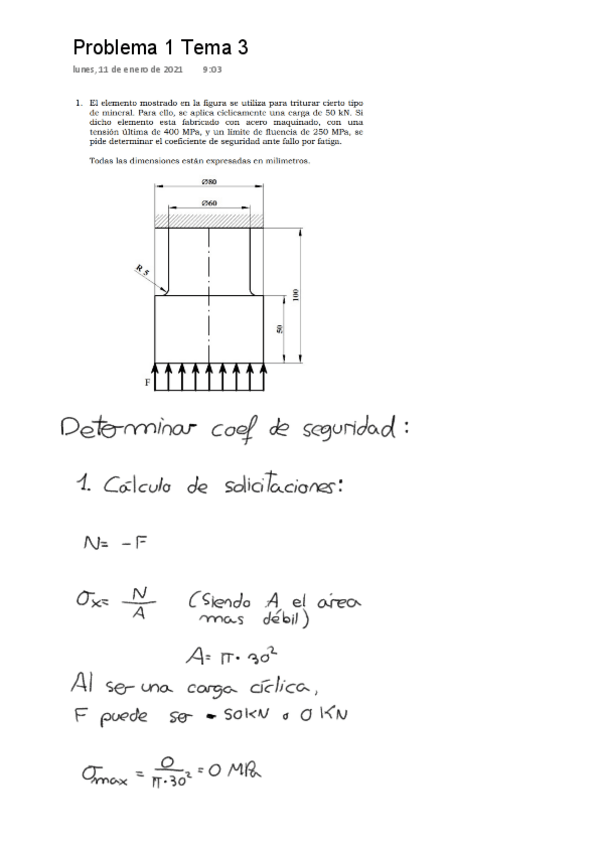 Problema 1 Tema 3
lunes, 11 de enero de 2021 9:03
1. El elemento mostrado en la figura se utiliza para triturar cierto tipo
de mineral. Para ello, se aplica cíclicamente una carga de 50 kN. Si
dicho elemento esta fabricado con acero maquinado, con una
tensión última de 400 MPa, y un límite de fluencia de 250 MPa, se
pide determinar el coeficiente de seguridad ante fallo por fatiga.
Todas las dimensiones están expresadas en milímetros.
Ø80
Ø60
R 5
100
50
F
Determinar coef de seguridad:
1. Cálculo de solicitaciones:
N= -F
σx= N/A (Siendo A el área
mas débil)
A= π· 30²
Al ser una carga cíclica,
F puede ser - 50KN o 0 KN
σmax = 0/π·30² = 0 MPa